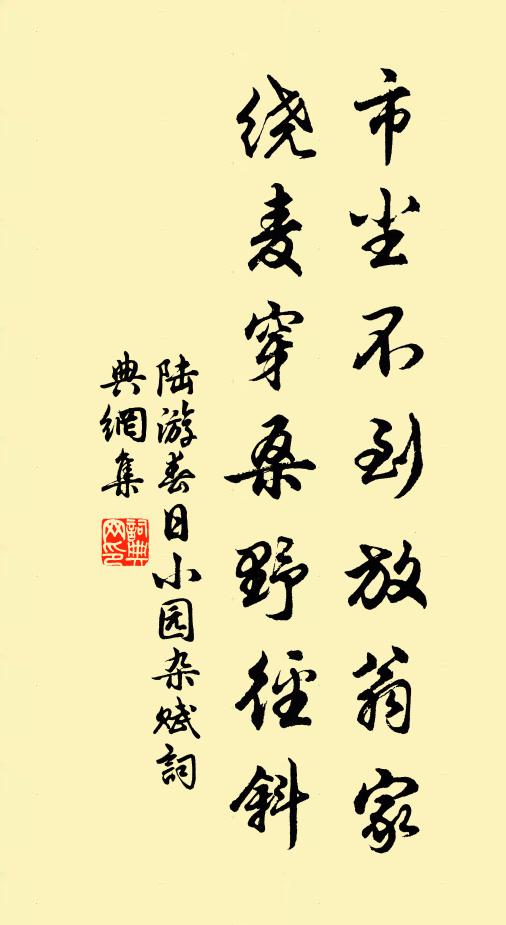 市尘不到放翁家
绕麦穿桑野径斜
陆游春日小园杂赋詞
典網集
詞典网印